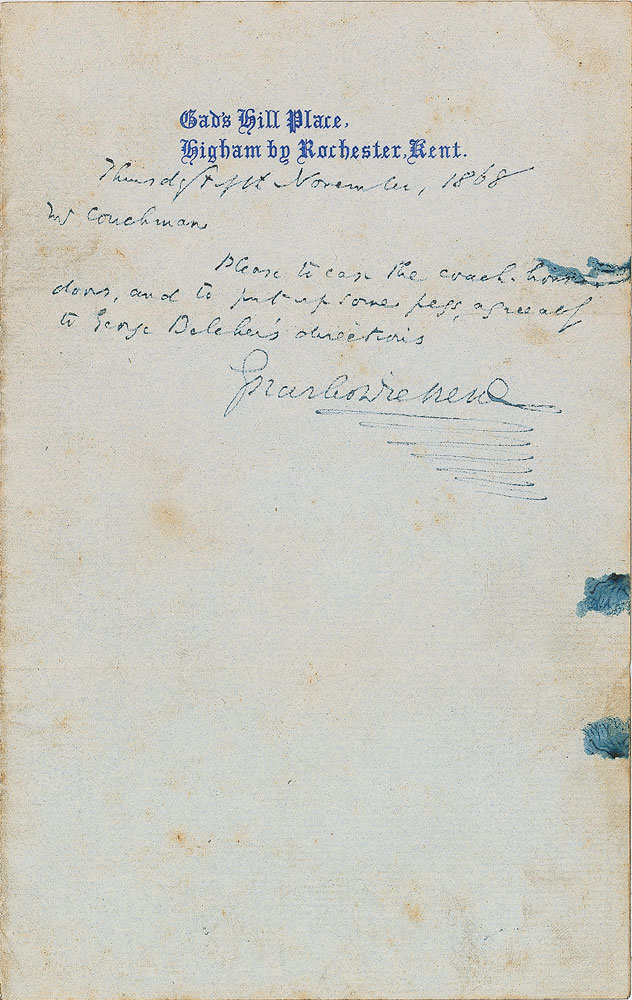 Gad's Hill Place,
Higham by Rochester, Kent.
Thursday November, 1868
Mr Couchman
Please to ease the coach-house
doors, and to put up some pegs, agreeably
to George Belcher's directions
Charles Dickens